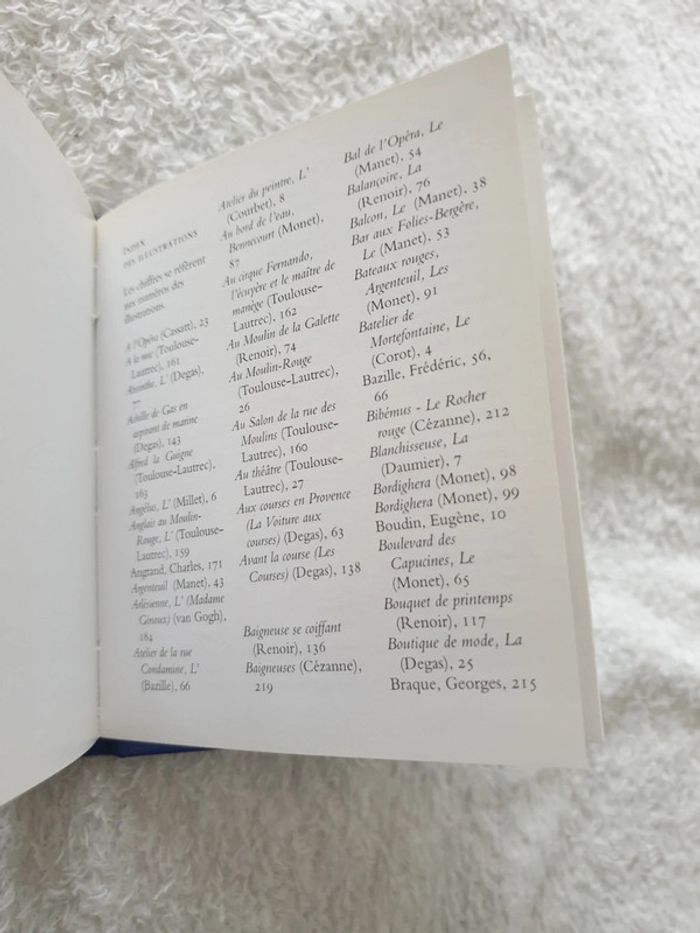 INDEX
DES ILLUSTRATIONS
Les chiffres se réfèrent
aux numéros des
illustrations.
A l'Opéra (Cassatt), 23
A la mie (Toulouse-
Lautrec), 161
Absinthe, L' (Degas),
Achille de Gas en
aspirant de marine
(Degas), 143
Alfred la Guigne
(Toulouse-Lautrec),
163
Angélus, L' (Millet), 6
Anglais au Moulin-
Rouge, L' (Toulouse-
Lautrec), 159
Angrand, Charles, 171
Argenteuil (Manet), 43
Arlésienne, L' (Madame
Ginoux) (van Gogh),
184
Atelier de la rue
Condamine, L'
(Bazille), 66
Atelier du peintre, L'
(Courbet), 8
Au bord de l'eau,
Bennecourt (Monet),
87
Au cirque Fernando,
l'écuyère et le maître de
manège (Toulouse-
Lautrec), 162
Au Moulin de la Galette
(Renoir), 74
Au Moulin-Rouge
(Toulouse-Lautrec),
26
Au Salon de la rue des
Moulins (Toulouse-
Lautrec), 160
Au théâtre (Toulouse-
Lautrec), 27
Aux courses en Provence
(La Voiture aux
courses) (Degas), 63
Avant la course (Les
Courses) (Degas), 138
Baigneuse se coiffant
(Renoir), 136
Baigneuses (Cézanne),
219
Bal de l'Opéra, Le
(Manet), 54
Balançoire, La
(Renoir), 76
Balcon, Le (Manet), 38
Bar aux Folies-Bergère,
Le (Manet), 53
Bateaux rouges,
Argenteuil, Les
(Monet), 91
Batelier de
Mortefontaine, Le
(Corot), 4
Bazille, Frédéric, 56,
66
Bibémus - Le Rocher
rouge (Cézanne), 212
Blanchisseuse, La
(Daumier), 7
Bordighera (Monet), 98
Bordighera (Monet), 99
Boudin, Eugène, 10
Boulevard des
Capucines, Le
(Monet), 65
Bouquet de printemps
(Renoir), 117
Boutique de mode, La
(Degas), 25
Braque, Georges, 215